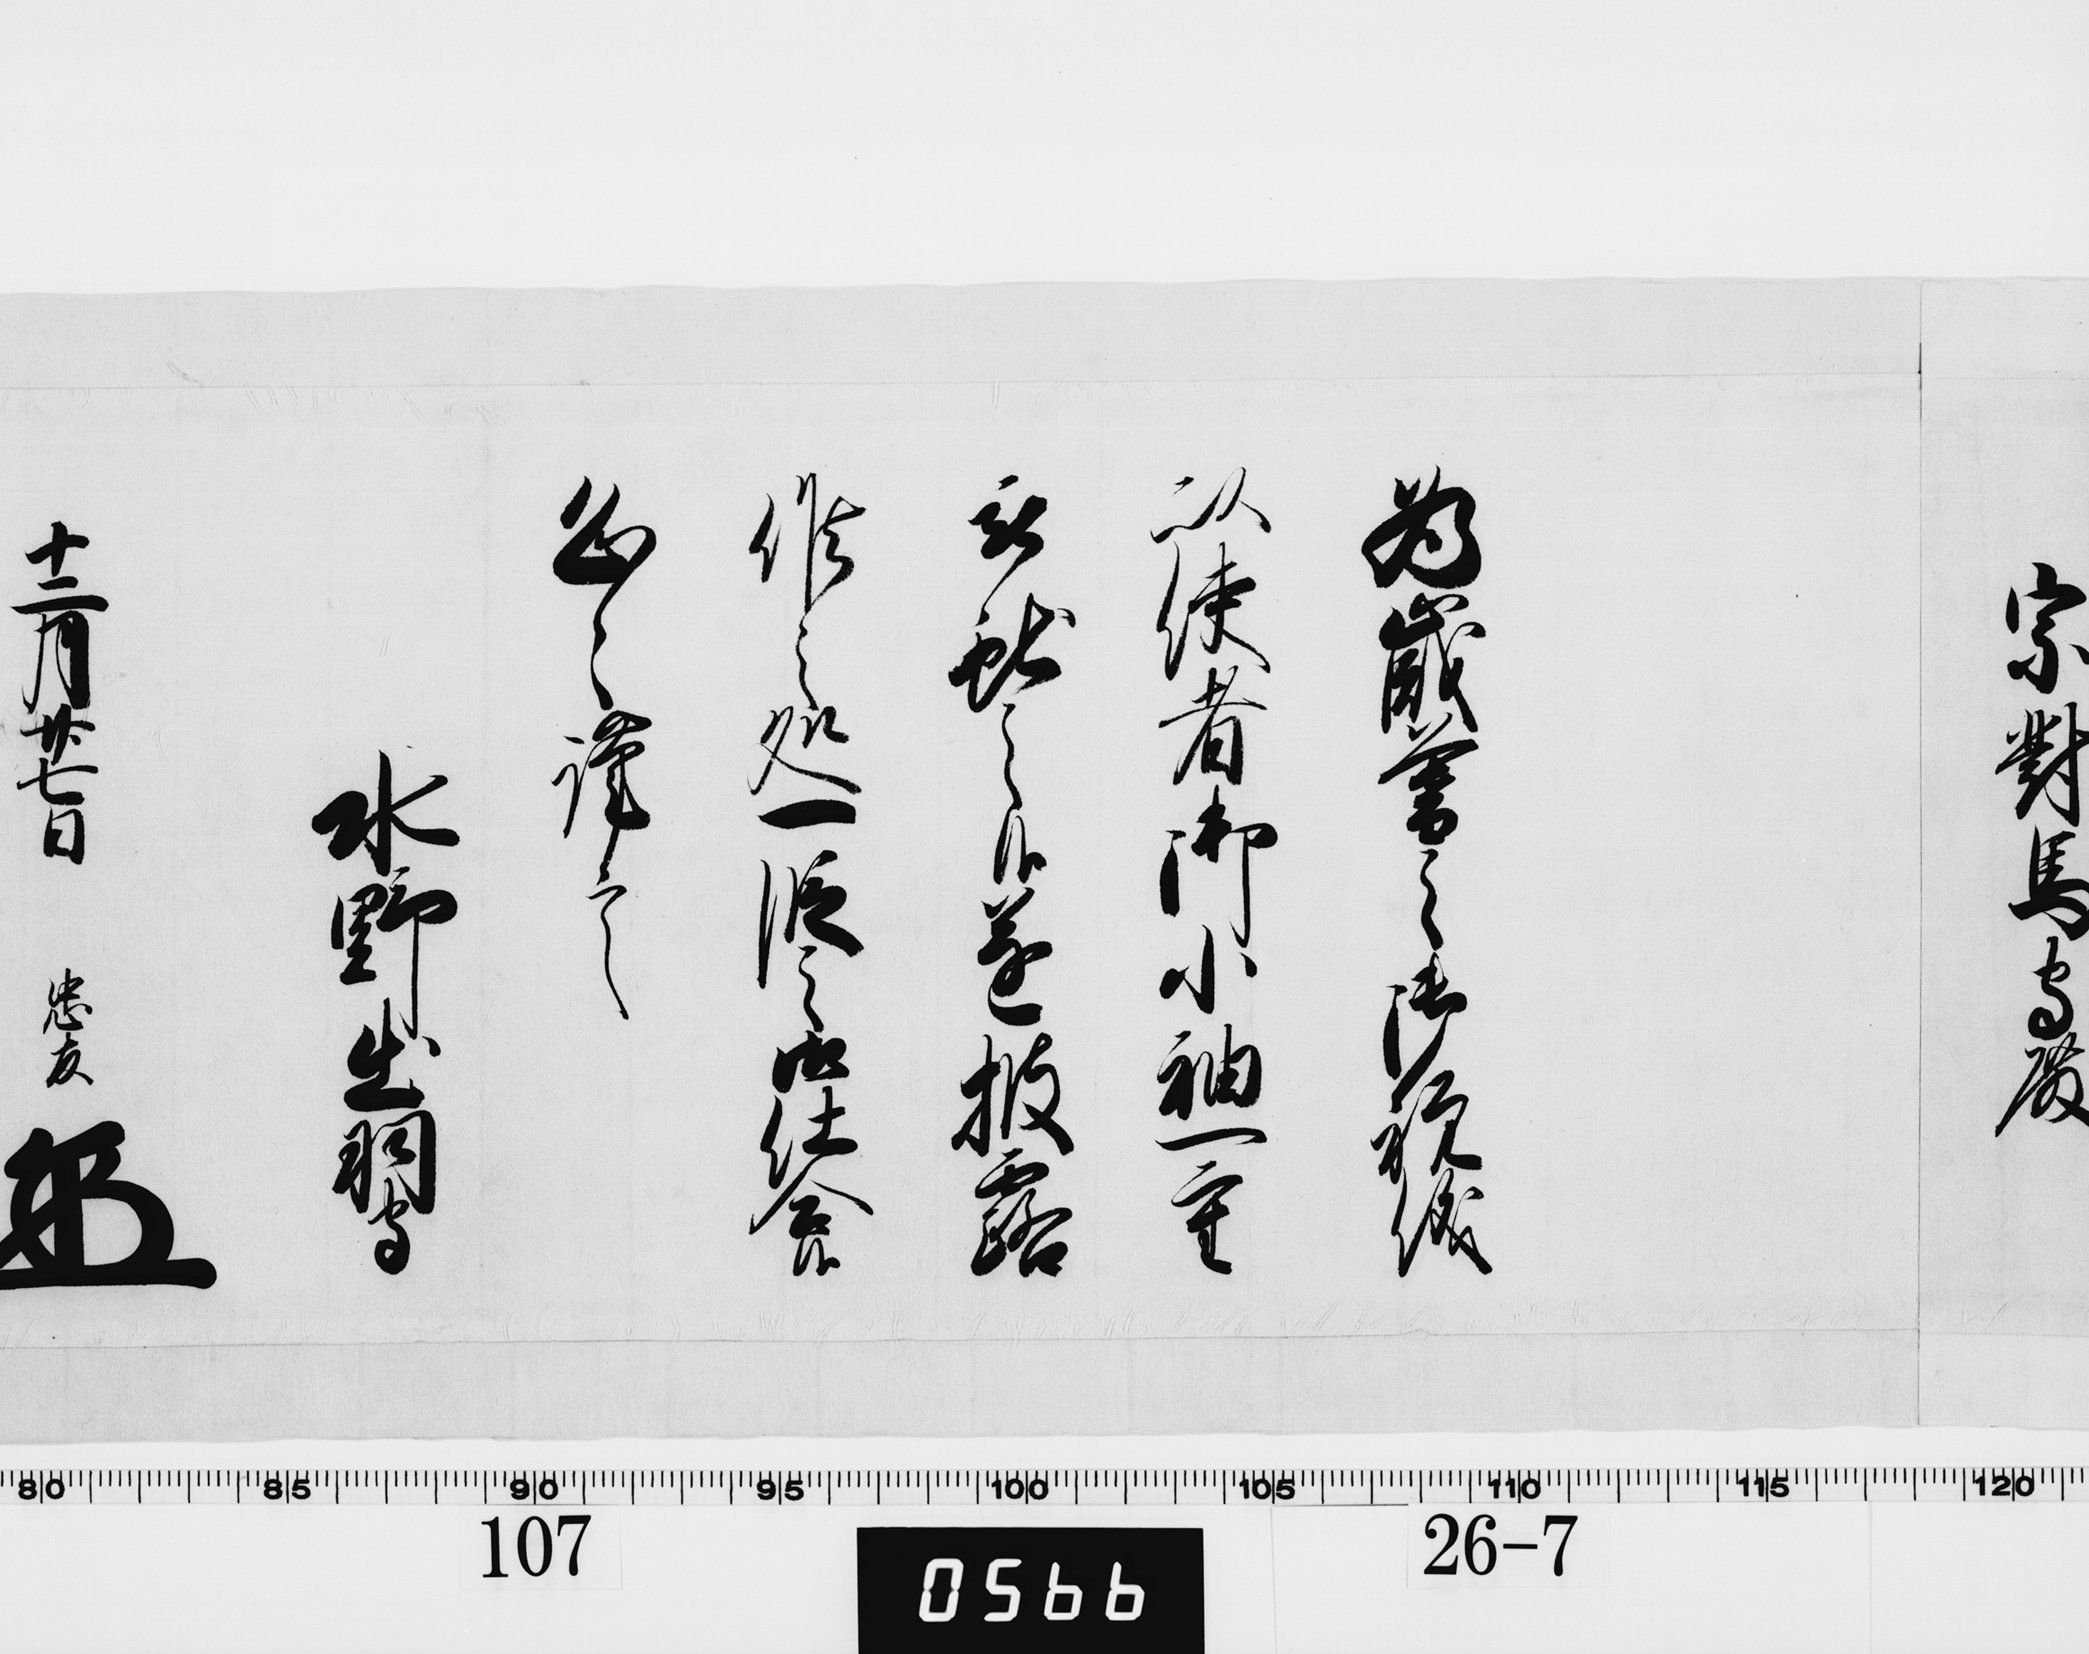 宗對馬守殿
為歳暮之御祝儀
以使者御小袖一重
被献之候遂披露
候之処一段之御仕合候
恐々謹言
水野出羽守
十二月廿七日 忠友
80 85 90 95 100 105 110 115 120
107
0566
26-7